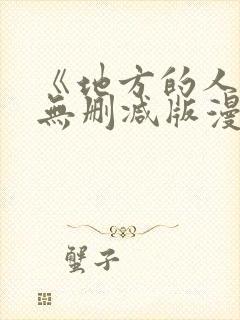 《地方的人
無删减版漫
蟹子